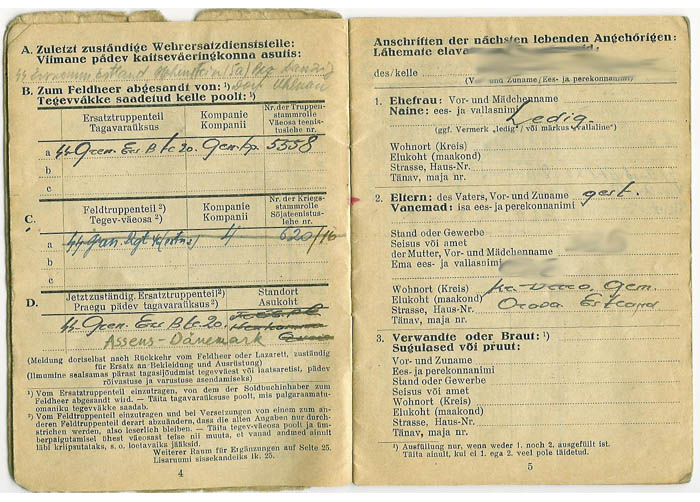 A. Zuletzt zuständige Wehrersatzdienststelle:
Viimane pädev kaitseväeringkonna asutis:
Danzig
B. Zum Feldheer abgesandt von: ¹)
Tegevväkke saadetud kelle poolt: ¹)
Ersatztruppenteil
Tagavaraüksus
Kompanie
Kompanii
Nr. der Truppen-
stammrolle
Väeosa teenis-
tuslehe nr.
a SS Gren. Ers Btl 20. Gen. Kp. 5558
b
c
C.
Feldtruppenteil ²)
Tegev-väeosa ²)
Kompanie
Kompanii
Nr. der Kriegs-
stammrolle
Sõjateenistus-
lehe nr.
a 4 620/16
b
c
D.
Jetztzuständig. Ersatztruppenteil²)
Praegu pädev tagavaraüksus²)
Standort
Asukoht
SS Gren. Ers Btl 20.
Assens-Dänemark
(Meldung dortselbst nach Rückkehr vom Feldheer oder Lazarett, zuständig
für Ersatz an Bekleidung und Ausrüstung)
(Ilmumine sealsamas pärast tagasijõudmist tegevväest või laatsaretist, pädev
rõivastuse ja varustuse asendamiseks)
¹) Vom Ersatztruppenteil einzutragen, von dem der Soldbuchinhaber zum
Feldheer abgesandt wird. — Täita tagavaraüksuse poolt, mis palgaraamatu-
omaniku tegevväkke saadab.
²) Vom Feldtruppenteil einzutragen und bei Versetzungen von einem zum an-
deren Feldtruppenteil derart abzuändern, dass die alten Angaben nur durch-
strichen werden, also leserlich bleiben. — Täita tegev-väeosa poolt ja üm-
berpaigutamisel ühest väeosast teise nii muuta, et vanad andmed ainult
läbi kriipsutataks, s. o. loetavaiks jääksid.
Weiterer Raum für Ergänzungen auf Seite 25.
Lisaruumi sissekandeiks lk. 25.
4
Anschriften der nächsten lebenden Angehörigen:
Lähemate elava
des/kelle
(V und Zuname/Ees- ja perekonnanimi)
1. Ehefrau: Vor- und Mädchenname
Naine: ees- ja vallasnimi
Ledig.
(ggf. Vermerk „ledig"/ või märkus „vallaline")
Wohnort (Kreis)
Elukoht (maakond)
Strasse, Haus-Nr.
Tänav, maja nr.
2. Eltern: des Vaters, Vor- und Zuname gest.
Vanemad: isa ees- ja perekonnanimi
Stand oder Gewerbe
Seisus või amet
der Mutter, Vor- und Mädchenname
Ema ees- ja vallasnimi
Wohnort (Kreis)
Elukoht (maakond) Gem.
Strasse, Haus-Nr. Estland
Tänav, maja nr.
3. Verwandte oder Braut: ¹)
Sugulased või pruut:
Vor- und Zuname
Ees- ja perekonnanimi
Stand oder Gewerbe
Seisus või amet
Wohnort (Kreis)
Elukoht (maakond)
Strasse, Haus-Nr.
Tänav, maja nr.
¹) Ausfüllung nur, wenn weder 1. noch 2. ausgefüllt ist.
Täita ainult, kui ei 1. ega 2. veel pole täidetud.
5